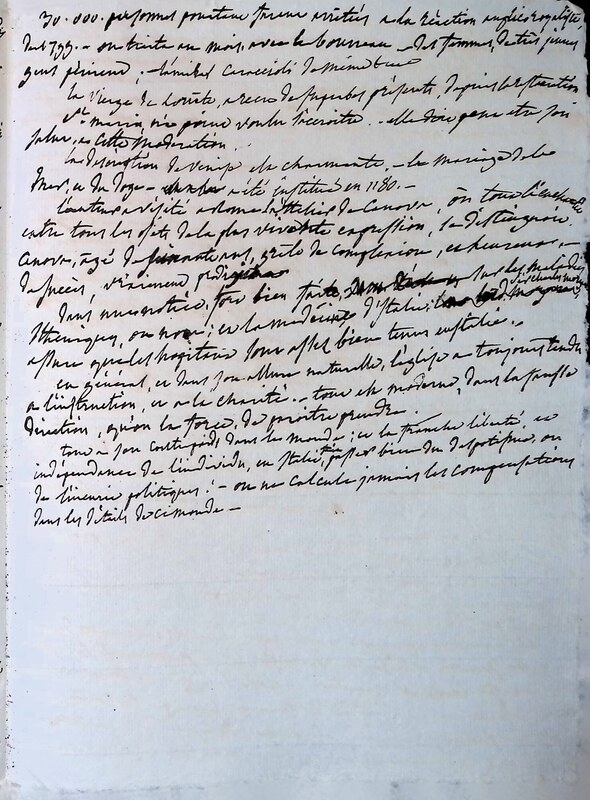 30.000. personnes pourtant furent arrêtées a la Réaction anglico royaliste,
de 1799. – on traita au mois, avec le bourreau – des femmes, de très jeunes
gens périrent, – l'amiral Caraccioli de même
la Vierge de Lorette, a reçu de superbes présents, depuis la
n'a point voulu s'accroître. – elle doit peut être son
salut, a cette modération.
la description de Venise est charmante. – le mariage de la
Mer, et du Doge – a été institué en 1180. –
l'auteur a visité a Rome l'atelier de Canova, où tout
entre tous les de la plus vivante expression, se distinguoit.
Canova, agé de ans, grêle de complexion, et heureux –
de succès, vraiment
dans une notice, fort bien faite, sur les maladies
et la médecine d'Italie,
assure que les hopitaux sont assez bien tenus en Italie. –
en général, et dans son allure naturelle, l'église a toujours tendu
a l'instruction, et a la charité. – tout est moderne, dans la fausse
direction, qu'on la force, de paroitre prendre.
tout a son contrepoids dans le monde; et la franche liberté, et
indépendance de l'individu, en Italie, bien du despotisme, ou
de l'incurie politiques! – on ne calcule jamais les compensations
dans les détails de ce monde –